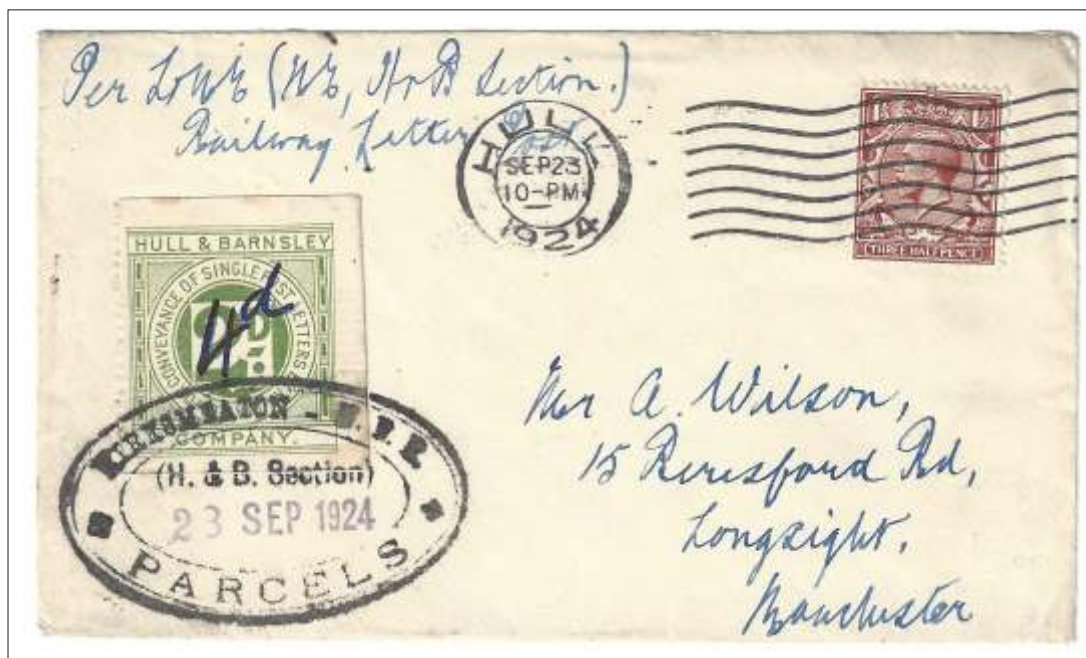 Per L&NE (NE, H&B Section.)
Railway Letter Post
HULL
SEP 23
10-PM
1924
THREE HALFPENCE
HULL & BARNSLEY
CONVEYANCE OF SINGLE POST LETTERS
4d
COMPANY.
KIRKSMEATON - N.E.R.
(H. & B. Section)
23 SEP 1924
PARCELS
Mr A. Wilson,
15 Beresford Rd,
Longsight,
Manchester